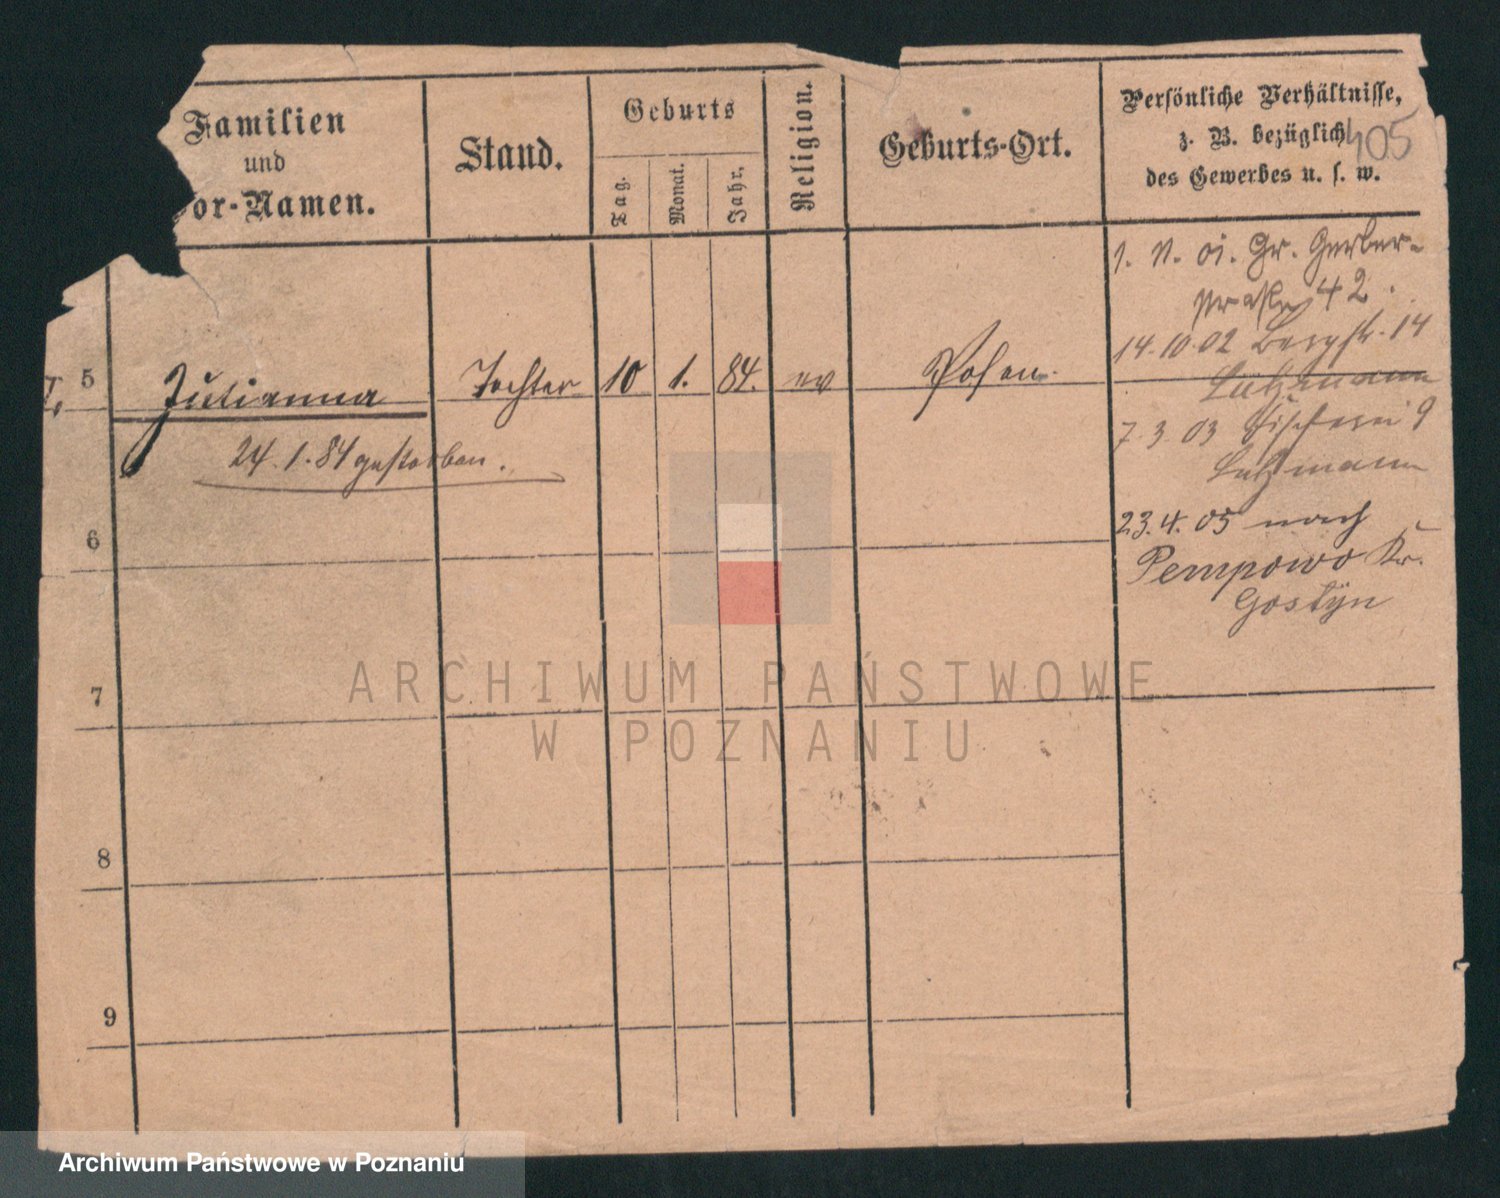 Familien
und
or-Namen.
Stand.
Geburts
Tag.
Monat.
Jahr.
Religion.
Geburts-Ort.
Persönliche Verhältnisse,
z. B. bezüglich
des Gewerbes u. s. w.
405
1. 11. 01. Gr. Gerber-
straße 42.
14.10.02 Bergstr. 14
Lützmann
7.3.03 Fischerei 9
Lutzmann
23.4.05 nach
Pempowo Kr.
Gostÿn
5 Julianna Tochter 10 1. 84. ev Posen.
24.1.84 gestorben.
6
7
8
9
ARCHIWUM PAŃSTWOWE
W POZNANIU
Archiwum Państwowe w Poznaniu